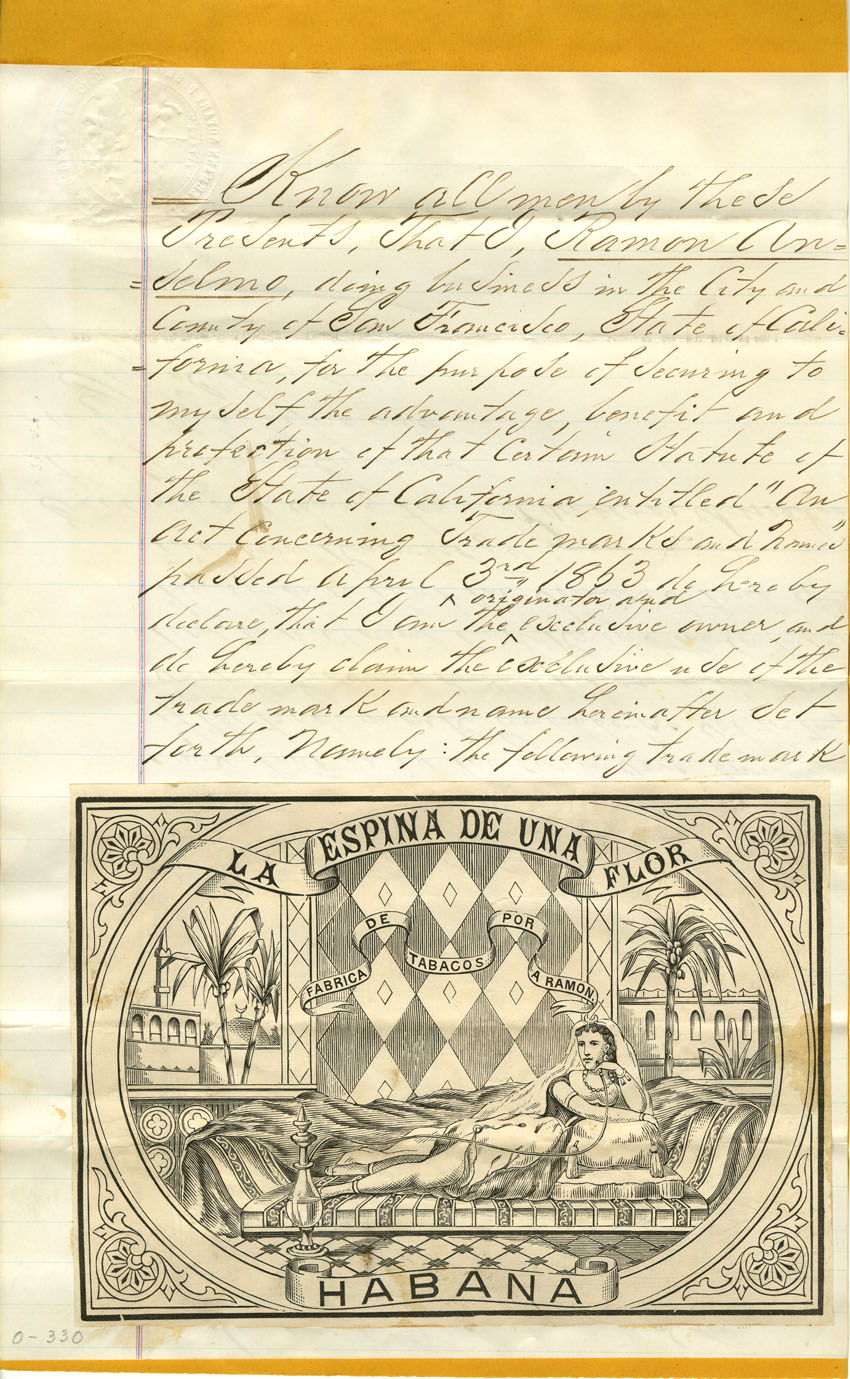 Know all men by these
Presents, That I, Ramon An=
=selmo, doing business in the City and
County of San Francisco, State of Cali=
=fornia, for the purpose of securing to
myself the advantage, benefit and
protection of that Certain Statute of
the State of California, entitled "An
act Concerning Trade marks and names"
passed april 3rd 1863 do hereby
originator and
declare, that I am the exclusive owner, and
do hereby claim the exclusive use of the
trade mark and name hereinafter set
forth, Namely: the following trade mark
LA ESPINA DE UNA FLOR
FABRICA DE TABACOS POR A RAMON.
HABANA
0-330